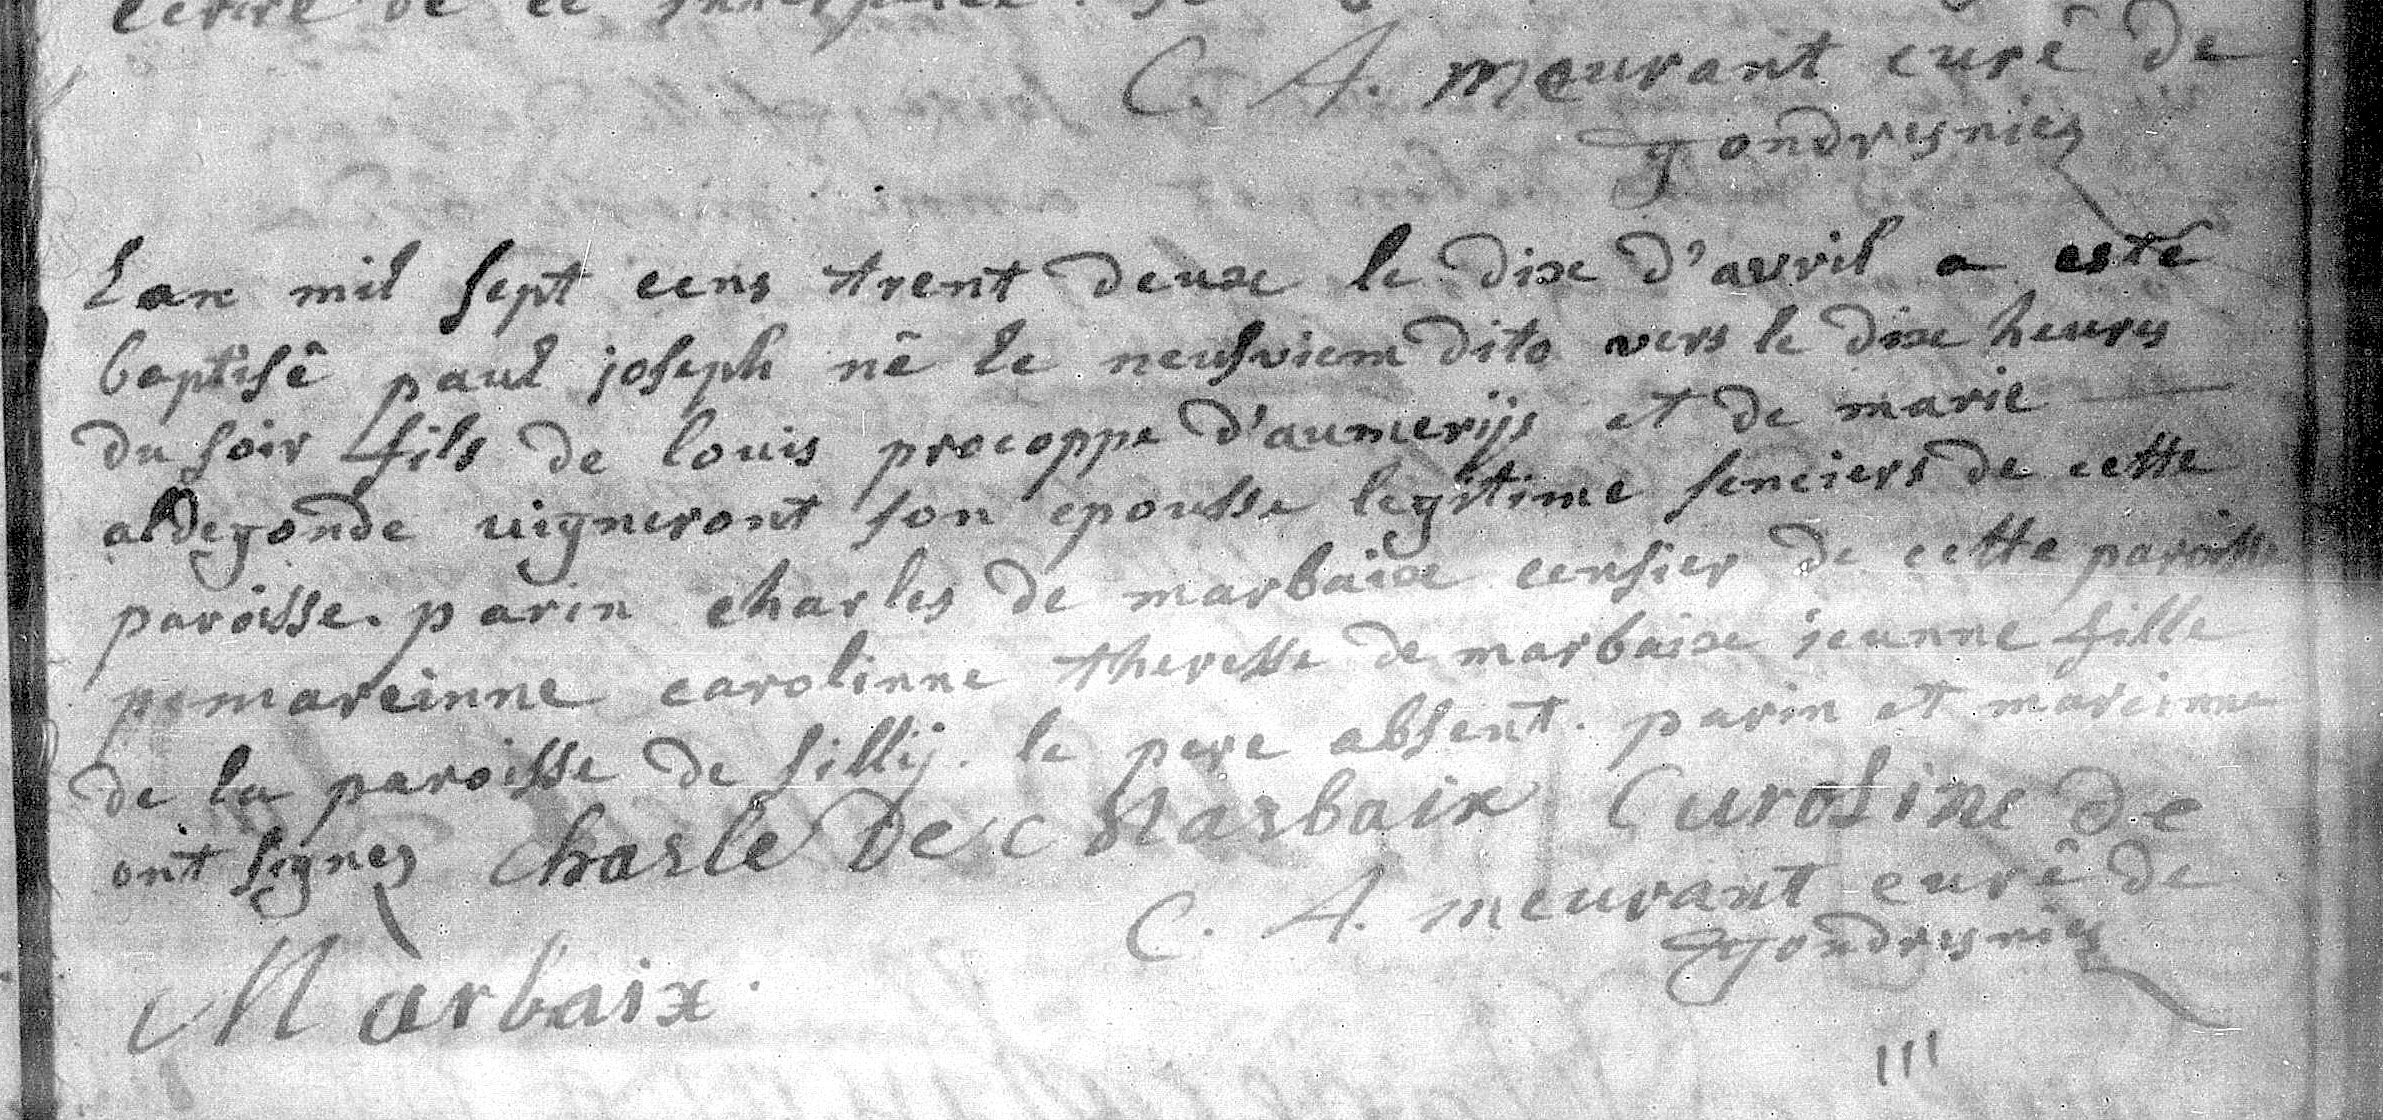 C. A. meurant curê de
gondregnies
Lan mil sept cens trent deux le dix d'avril a esté
baptisê paul joseph nê le neufviem dito vers le dix heures
du soir fils de louis procoppe d'aumerijs et de marie
aldegonde vigneront son epousse legitime cenciers de cette
paroisse. parin charles de marbaix censier de cette paroisse
mareinne carolinne theresse de marbaix jeunne fille
de la paroisse de sillij. le pere absent. parin et mareinne
ont signez Charle De Marbaix Caroline de
Marbaix.
C. A. meurant curê de
gondregnies